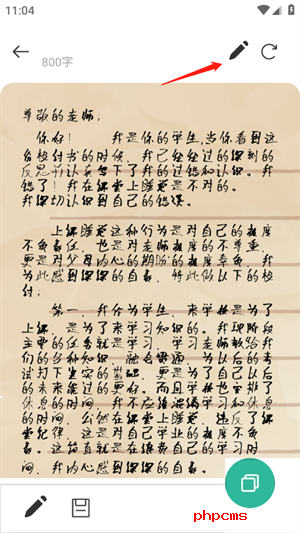 11:04
800字
尊敬的老师:
你好! 我是你的学生,当你看到这
份检讨书的时候,我已经经过的深刻的
反思并认真写下了我的过错和认识。我
错了!我在课堂上睡觉是不对的。
我深切认识到自己的错误。
上课睡觉这种行为是对自己的极度
不负责任,也是对老师极度的不尊重,
更是对父母内心的期盼的极度辜负,我
为此感到深深的自责,特此做以下的检
讨:
第一,我作为学生,来学校是为了
上课,是为了来学习知识的。我现阶段
主要的任务就是学习,学习老师教给我
们的各种知识,融会贯通,为以后的考
试打下坚实的基础,更是为了自己以后
的未来能过的更好。而且学校也安排了
休息的时间,我不应该混淆学习和休息
的时间,公然在课堂上睡觉,违反了课
堂纪律,这是对自己学业的极度不负
责。这简直就是在浪费自己的学习时
间,我内心感到深深的自责。
phpcms